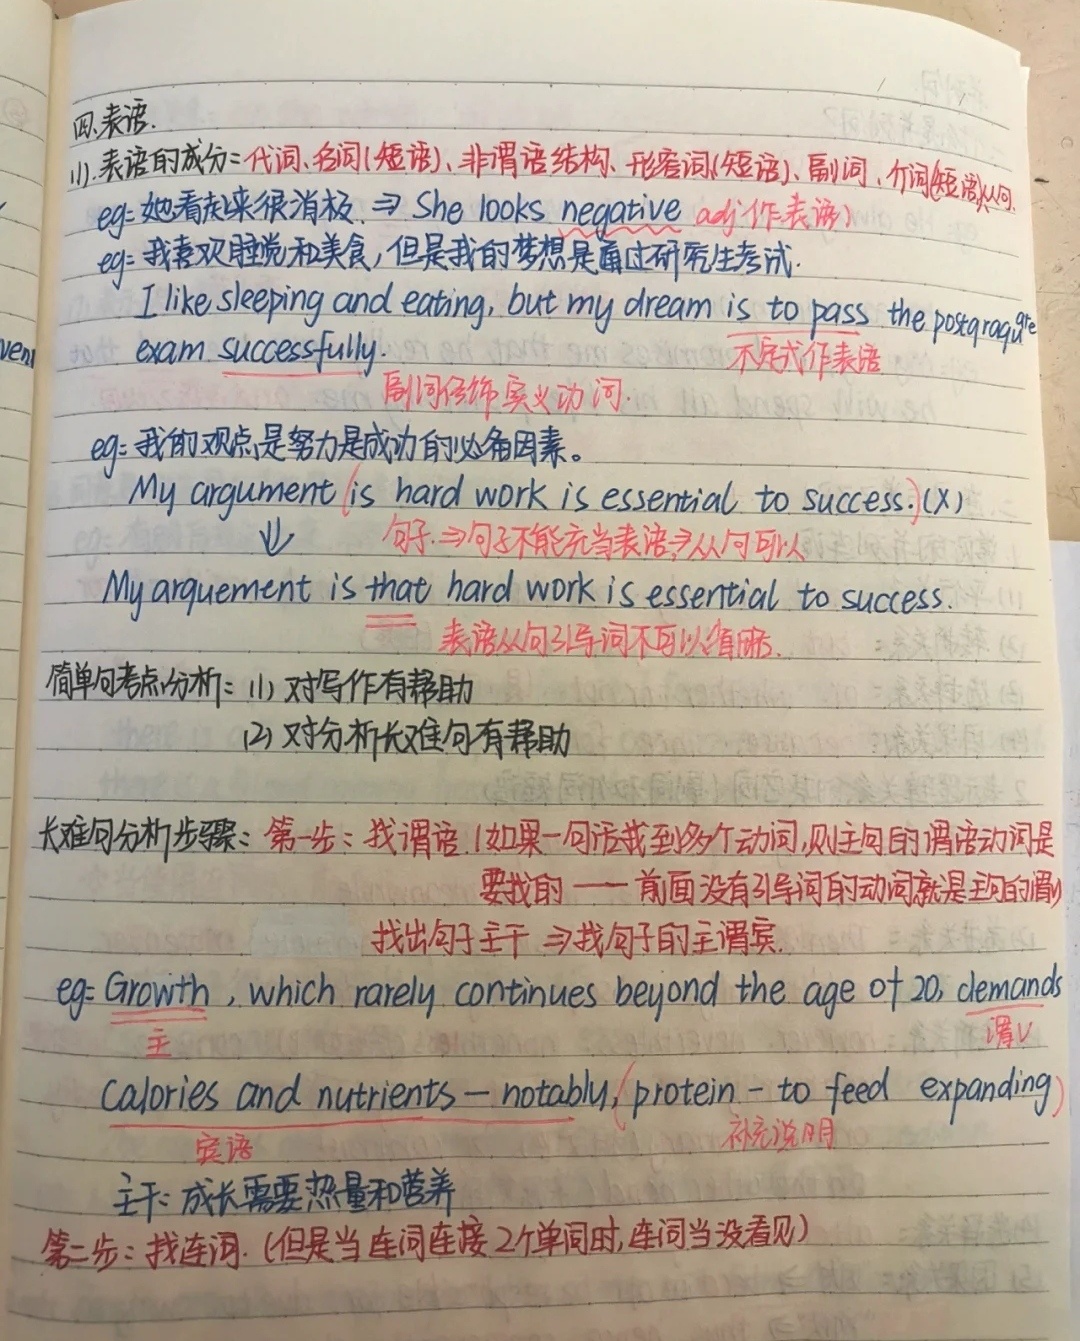 四.表语.
(1).表语的成分=代词、名词(短语)、非谓语结构、形容词(短语)、副词、介词(短语)从句.
eg=她看起来很消极. ⇒ She looks negative adj作表语)
eg=我喜欢睡觉和美食,但是我的梦想是通过研究生考试.
I like sleeping and eating, but my dream is to pass the
exam successfully.
不定式作表语
副词修饰实义动词.
eg=我的观点是努力是成功的必备因素。
My argument (is hard work is essential to success.)(X)
句子.⇒句子不能充当表语,从句可以
My arguement is that hard work is essential to success.
表语从句引导词不可以省略.
简单句考点分析=(1) 对写作有帮助
(2) 对分析长难句有帮助
长难句分析步骤:第一步:找谓语.(如果一句话找到多个动词,则主句的谓语动词是
要找的 —— 前面没有引导词的动词就是主句的谓v)
找出句子主干 ⇒找句子的主谓宾.
eg=Growth, which rarely continues beyond the age of 20, demands
主
谓V
calories and nutrients – notably, (protein – to feed expanding)
宾语
补充说明
主干:成长需要热量和营养
第二步:找连词.(但是当连词连接2个单词时,连词当没看见)